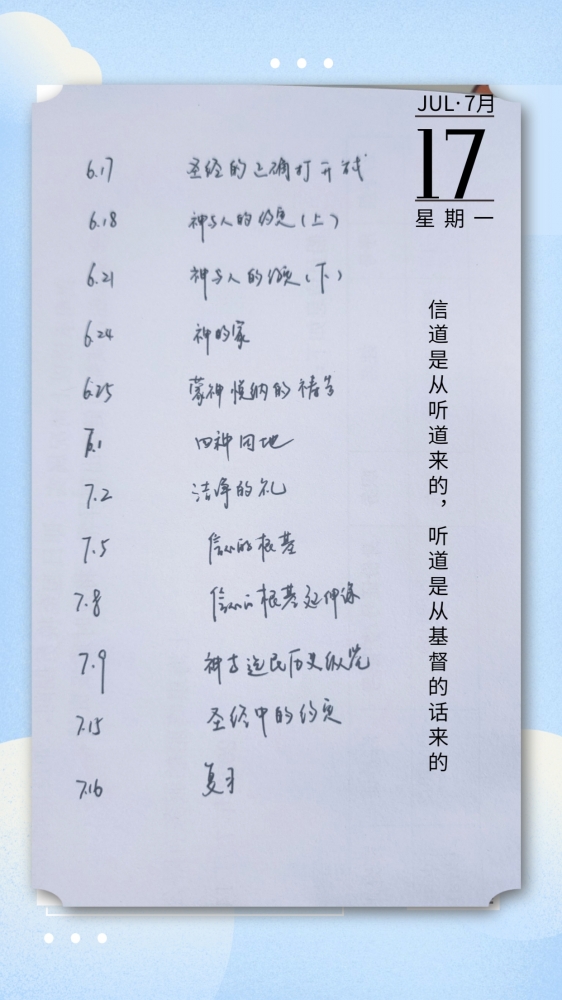 JUL·7月
17
星期一
6.17 圣经的正确打开式
6.18 神与人的约定(上)
6.21 神与人的约定(下)
6.24 神的家
6.25 蒙神悦纳的祷告
7.1 四种田地
7.2 洁净的礼
7.5 信仰的根基
7.8 信仰的根基延伸
7.9 神古选民历史纵览
7.15 圣经中的约定
7.16 复习
信道是从听道来的，听道是从基督的话来的